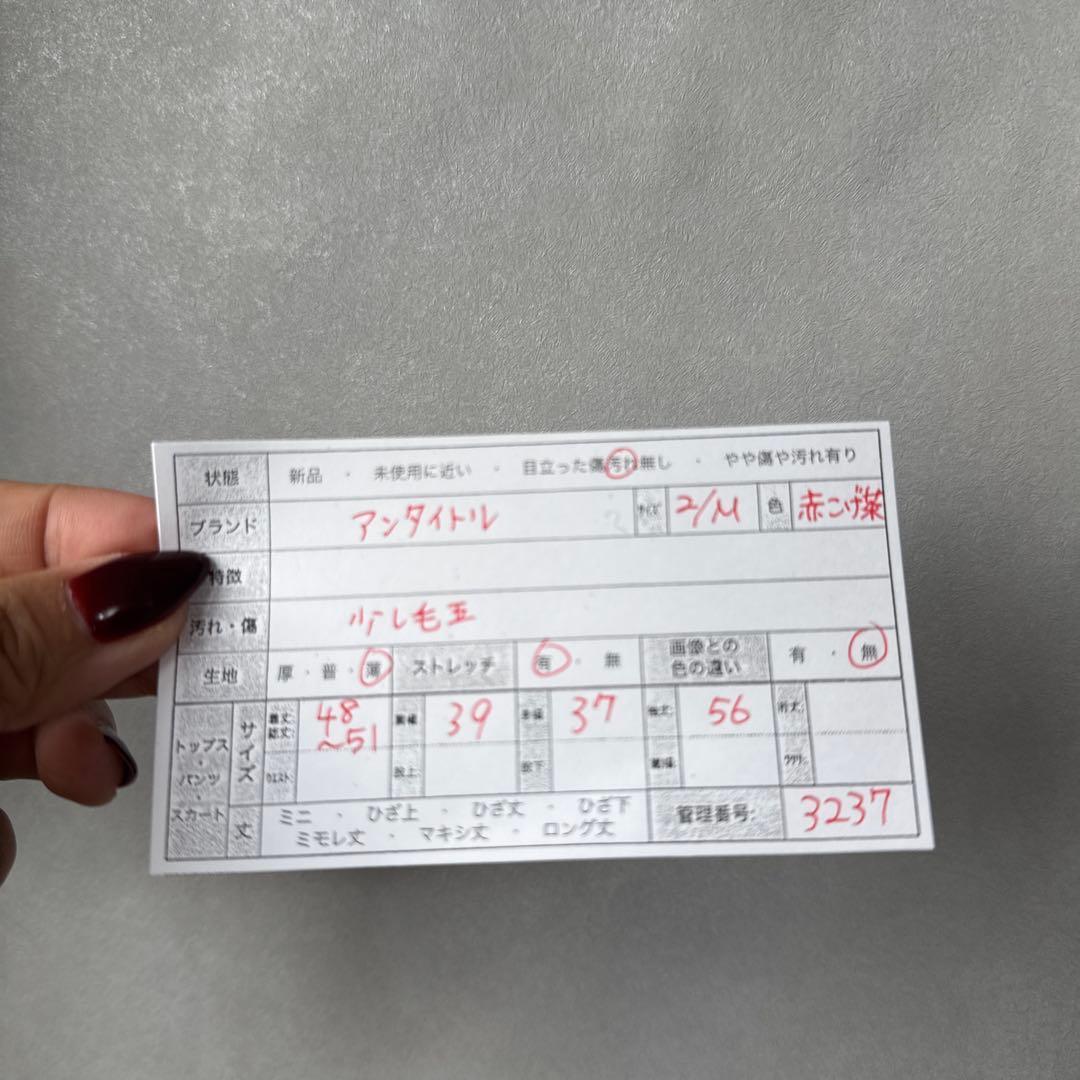 状態 新品 ・ 未使用に近い ・ 目立った傷汚れ無し ・ やや傷や汚れ有り
ブランド アンタイトル サイズ 2/M 色 赤こげ茶
特徴
汚れ・傷 少し毛玉
生地 厚・普・薄 ストレッチ 有・無 画像との色の違い 有・無
トップス・パンツ・スカート
サイズ
着丈: 総丈: 48～51 39 37 56
ウエスト: 股上: 股下 ワタリ:
丈 ミニ ・ ひざ上 ・ ひざ丈 ・ ひざ下
ミモレ丈 ・ マキシ丈 ・ ロング丈
管理番号: 3237